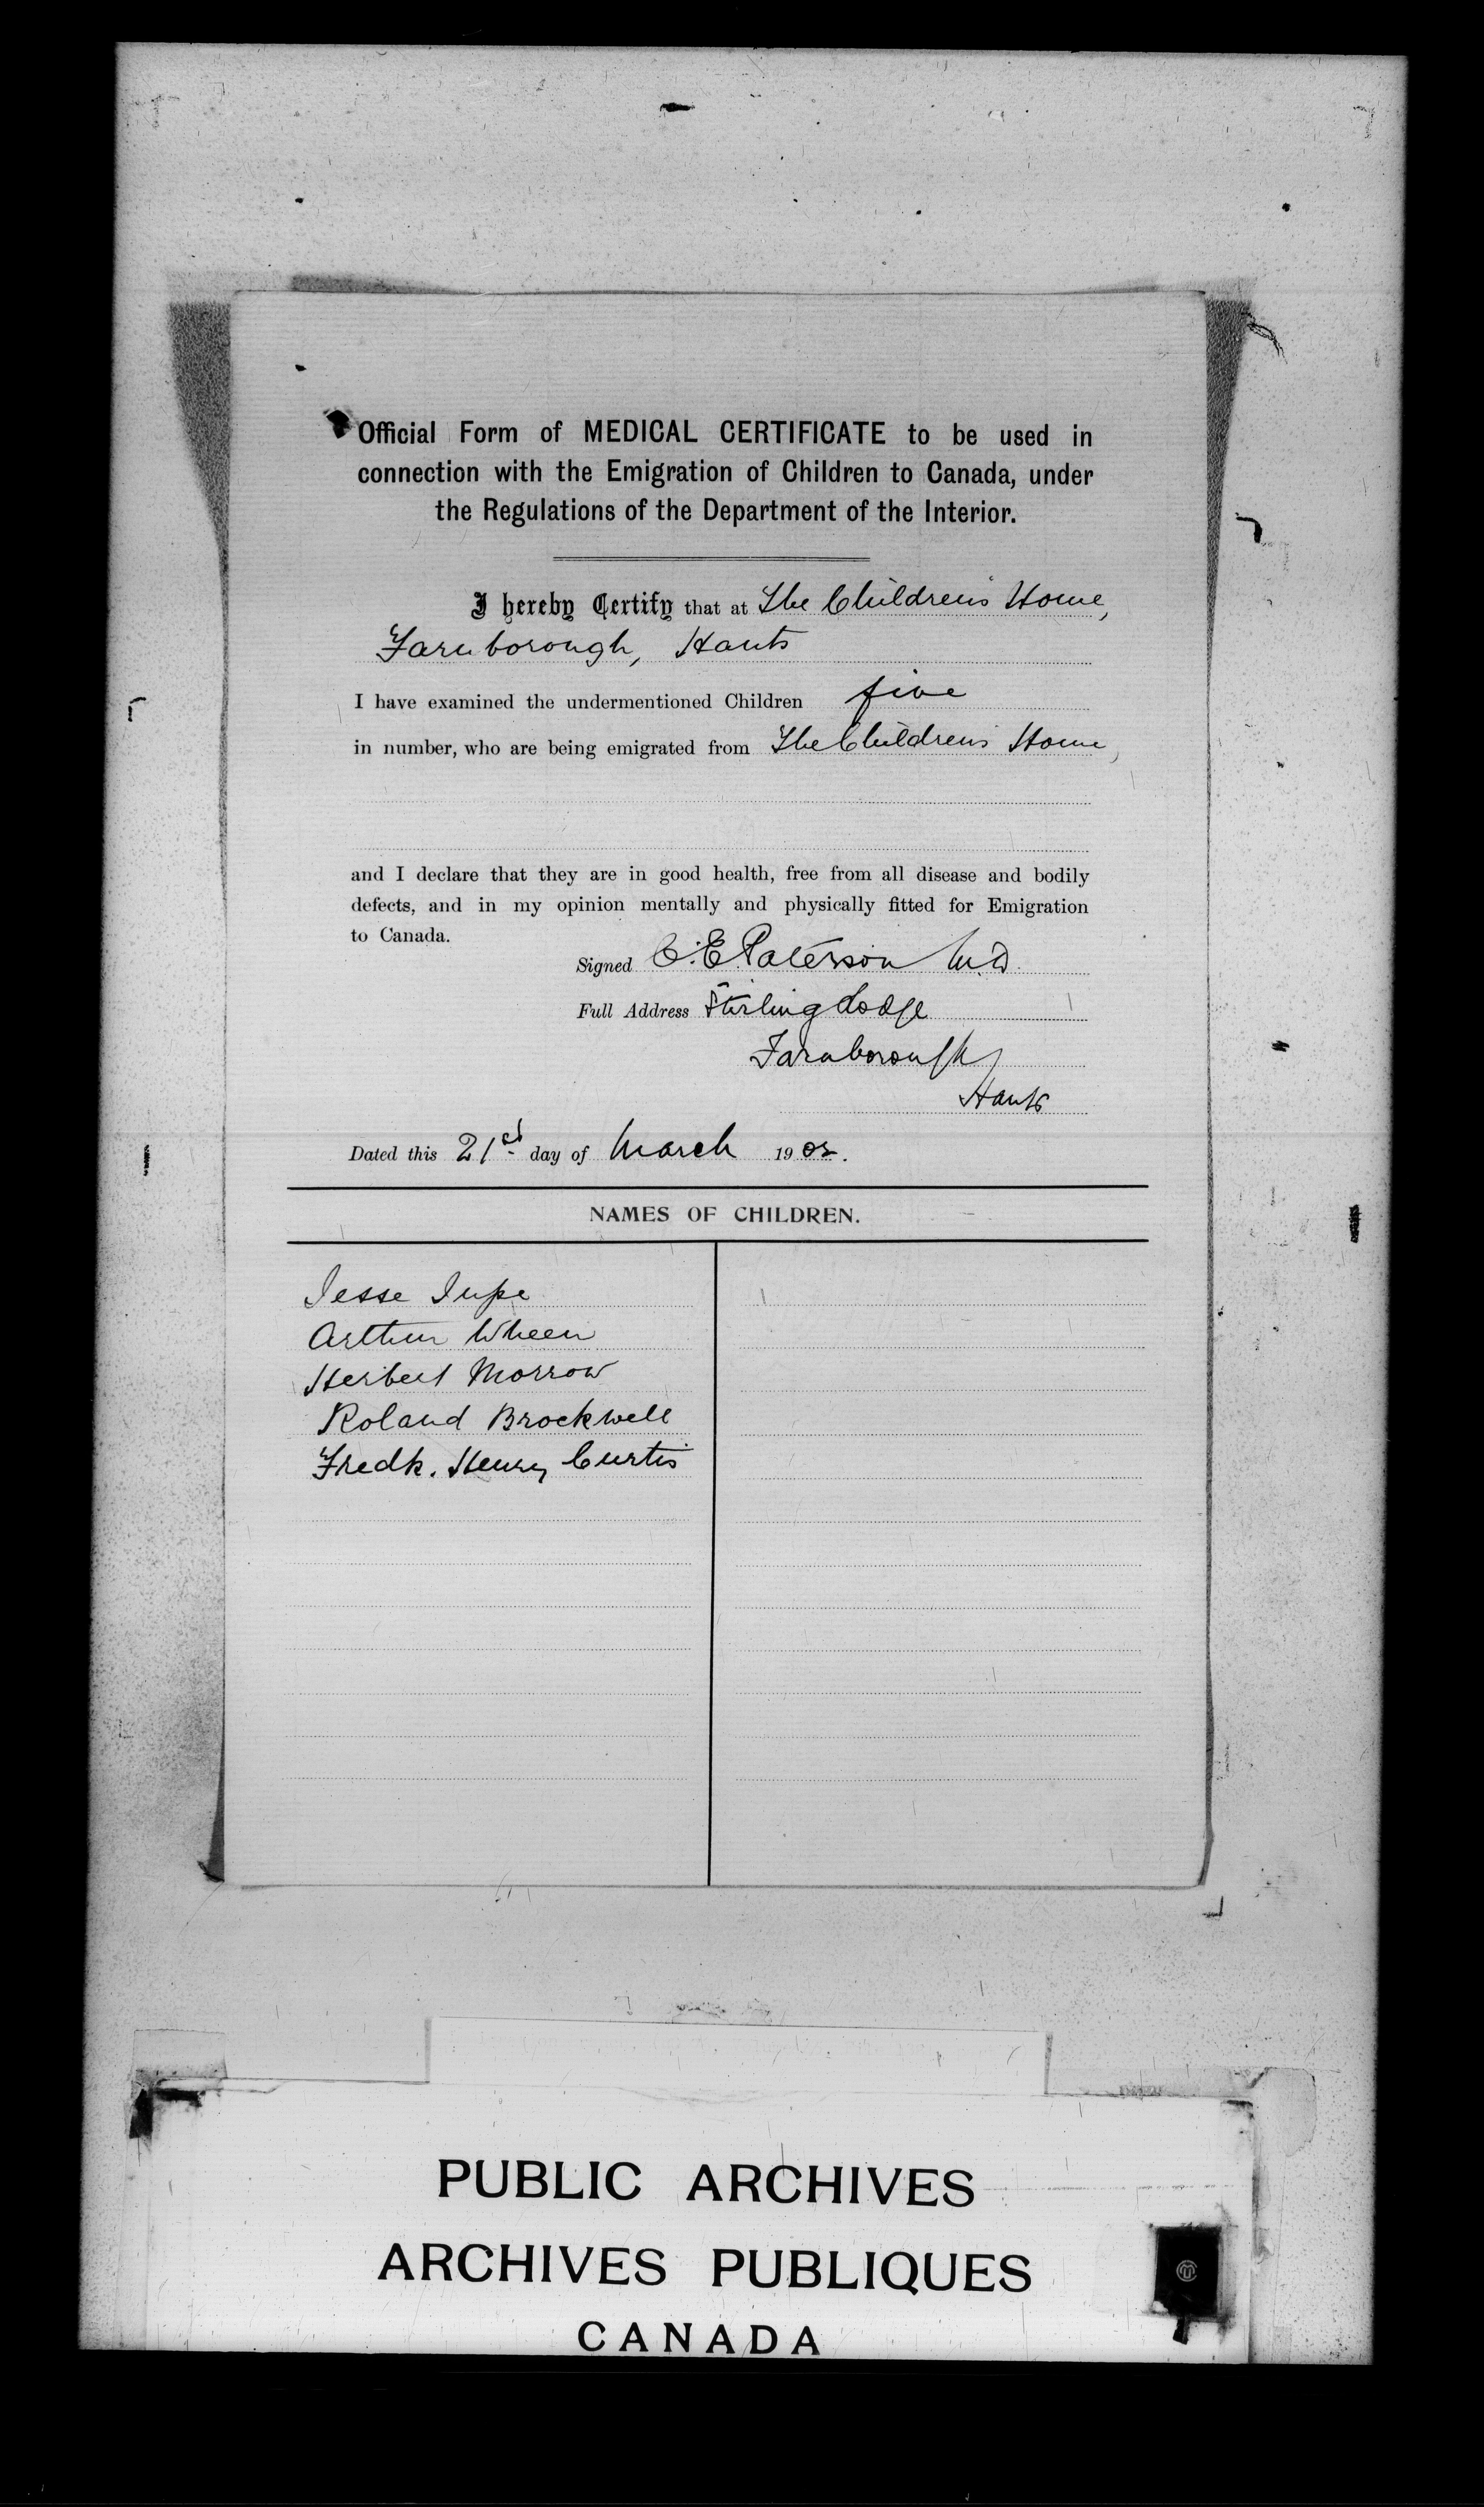 Official Form of MEDICAL CERTIFICATE to be used in
connection with the Emigration of Children to Canada, under
the Regulations of the Department of the Interior.
I hereby Certify that at The Children's Home,
Farnborough, Hants
I have examined the undermentioned Children five
in number, who are being emigrated from The Children's Home,
and I declare that they are in good health, free from all disease and bodily
defects, and in my opinion mentally and physically fitted for Emigration
to Canada.
Signed C. E. Paterson M.D.
Full Address Stirling Lodge
Farnborough
Hants
Dated this 21st day of March 1902.
NAMES OF CHILDREN.
Jesse Jupe
Arthur Wheen
Herbert Morrow
Roland Brockwell
Fredk. Henry Curtis
PUBLIC ARCHIVES
ARCHIVES PUBLIQUES
CANADA